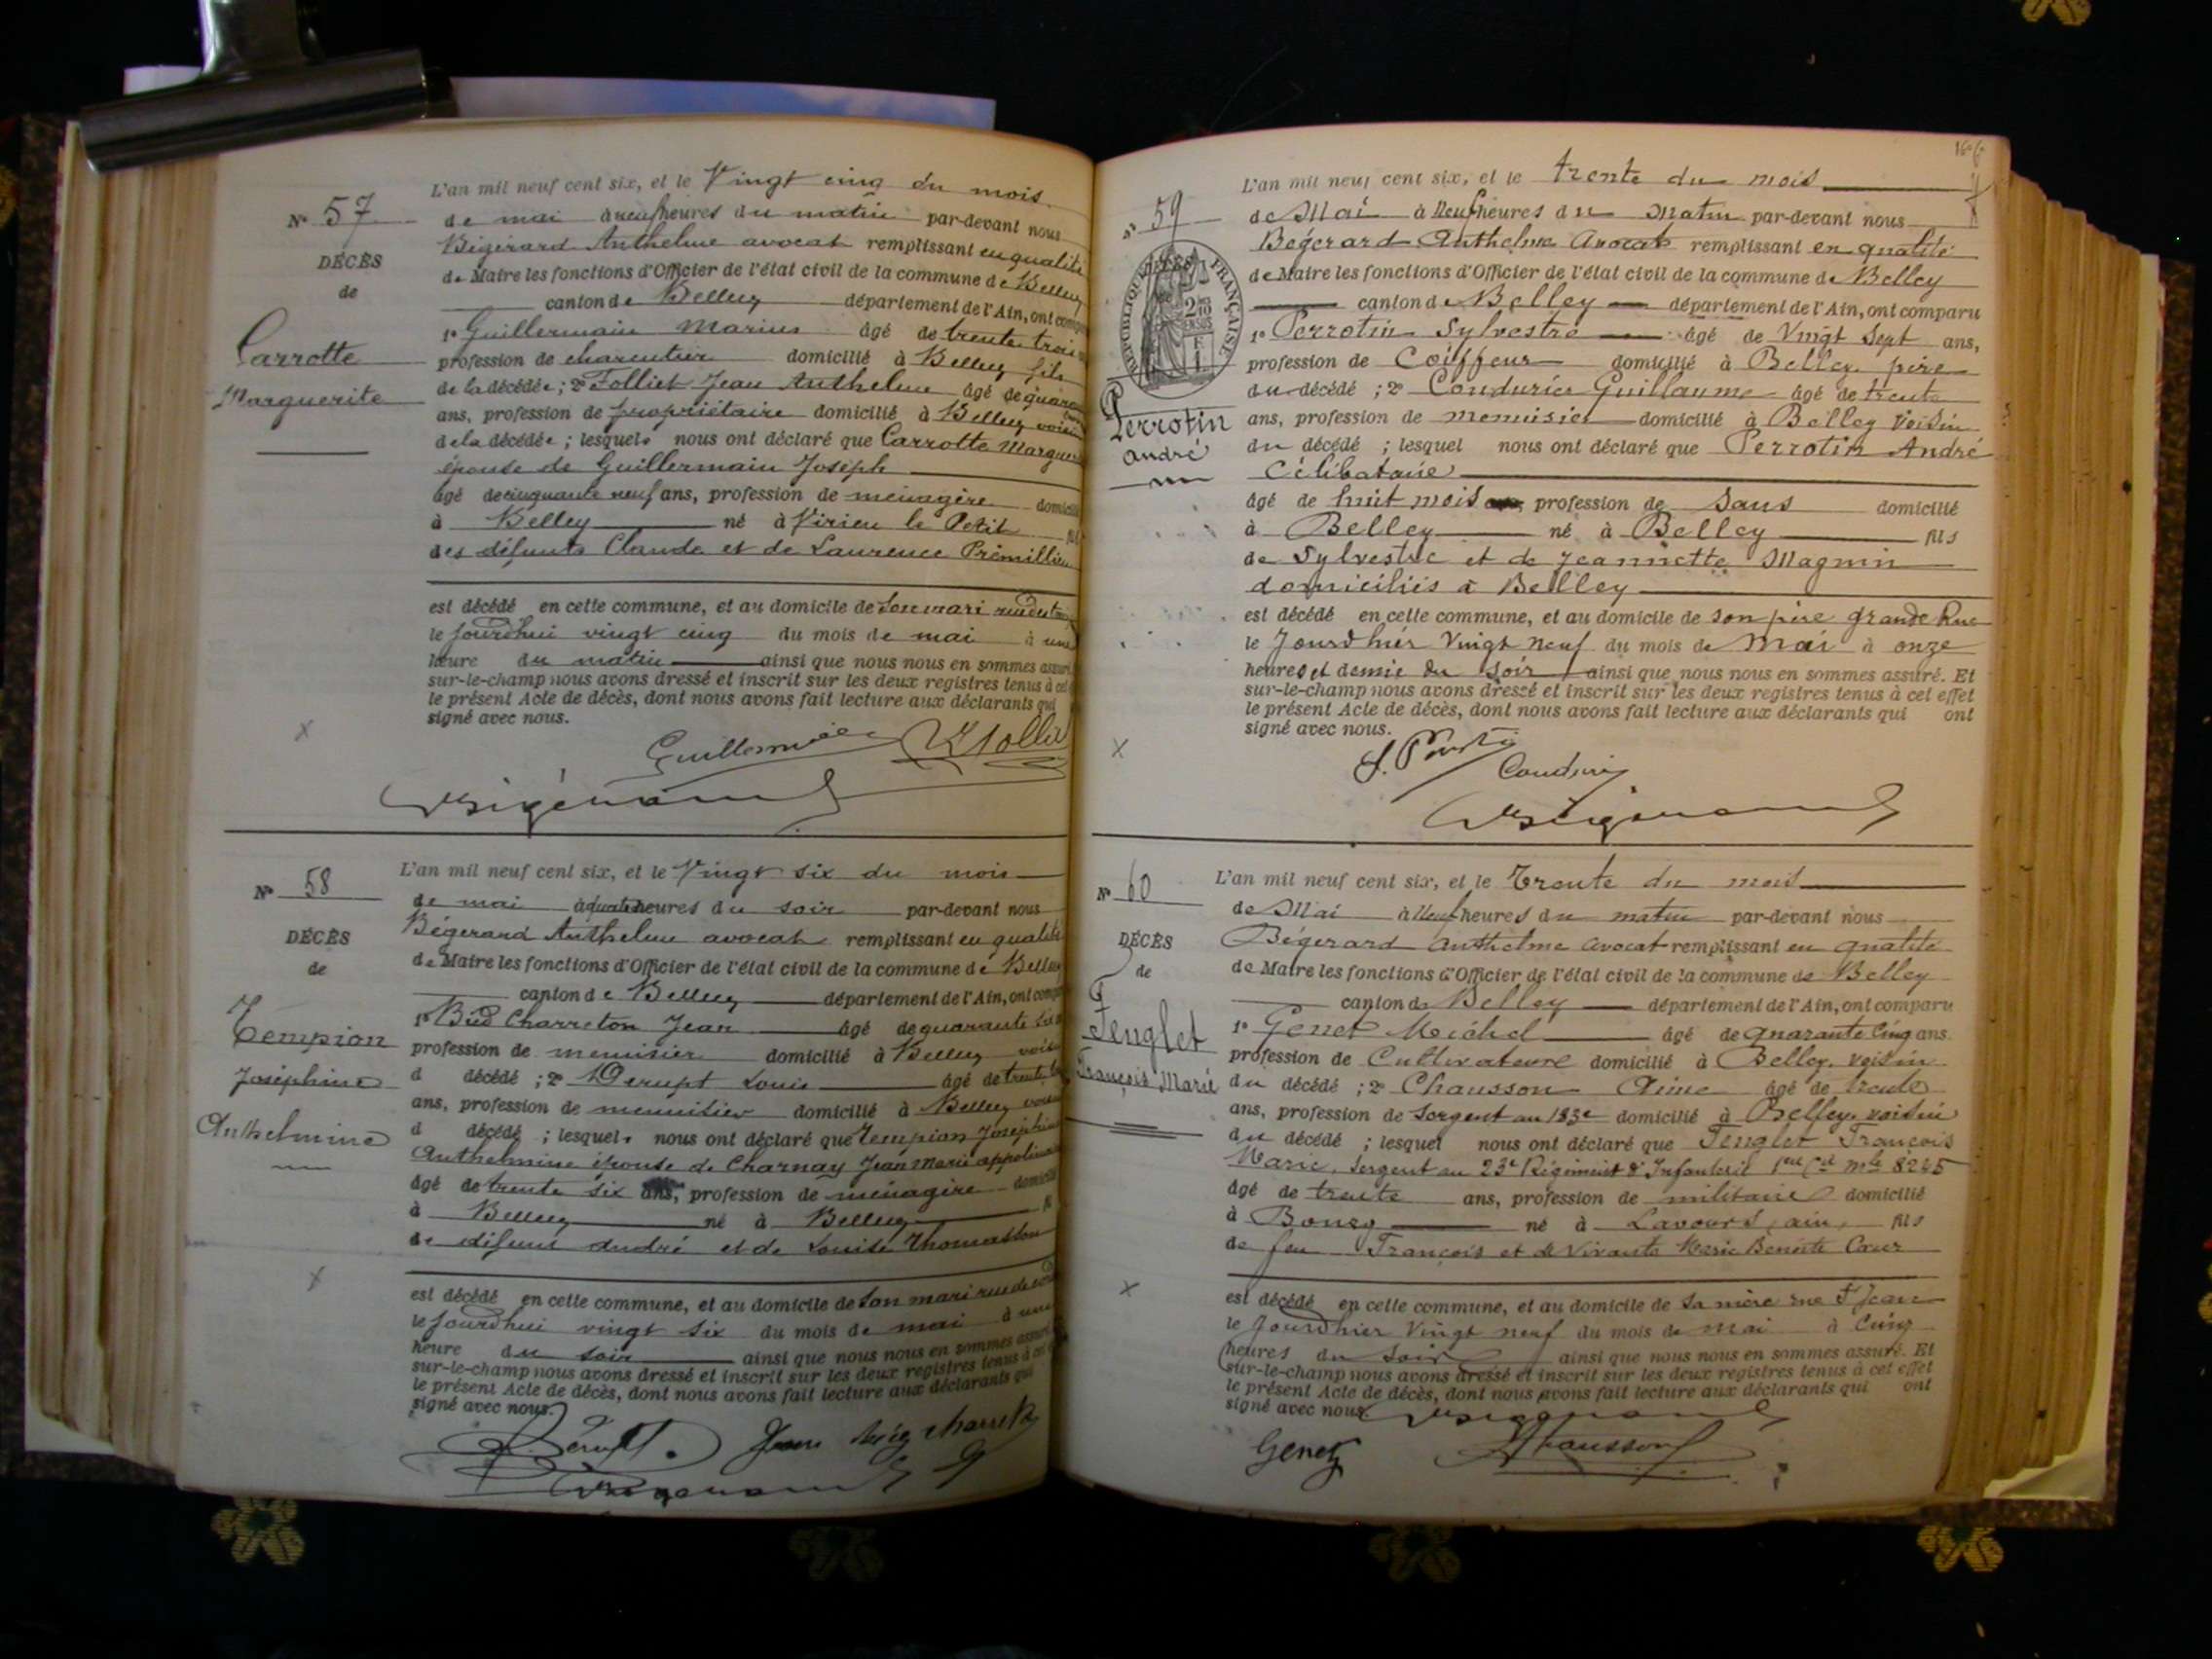 N° 57
DÉCÈS
de
Carrotte
Marguerite
L'an mil neuf cent six, et le Vingt cinq du mois
de mai à neuf heures du matin par-devant nous
Bégérard Anthelme avocat remplissant en qualité
de Maire les fonctions d'Officier de l'état civil de la commune de Belley
canton de Belley département de l'Ain, ont
1° Guillermain Marius âgé de trente trois
profession de charcutier domicilié à Belley fils
de la décédée ; 2° Folliet Jean Anthelme âgé de
ans, profession de propriétaire domicilié à Belley voisin
de la décédée ; lesquels nous ont déclaré que Carrotte
épouse de Guillermain Joseph
âgé de cinquante neuf ans, profession de ménagère
à Belley né à Virieu le Petit
des défunts Claude et de Laurence Prémillieu
est décédé en cette commune, et au domicile de son mari
le jourd'hui vingt cinq du mois de mai à une
heure du matin ainsi que nous nous en sommes
sur-le-champ nous avons dressé et inscrit sur les deux registres tenus à cet
le présent Acte de décès, dont nous avons fait lecture aux déclarants qui
signé avec nous.
N° 58
DÉCÈS
de
Tempion
Joséphine
Anthelmine
L'an mil neuf cent six, et le Vingt six du mois
de mai à quatre heures du soir par-devant nous
Bégerard Anthelme avocat remplissant en qualité
de Maire les fonctions d'Officier de l'état civil de la commune de Belley
canton de Belley département de l'Ain, ont
1° Charreton Jean âgé de quarante six
profession de menuisier domicilié à Belley
d décédé ; 2° Derupt Louis âgé de
ans, profession de menuisier domicilié à Belley
d décédé ; lesquels nous ont déclaré que Tempion
Anthelmine épouse de Charnay Jean Marie
âgé de trente six ans, profession de ménagère
à Belley né à Belley
de défunt André et de Louise Thomasson
est décédé en cette commune, et au domicile de son mari
le jourd'hui vingt six du mois de mai à une
heure du soir ainsi que nous nous en sommes
sur-le-champ nous avons dressé et inscrit sur les deux registres tenus à cet
le présent Acte de décès, dont nous avons fait lecture aux déclarants qui
signé avec nous.
N° 59
RÉPUBLIQUE FRANÇAISE
Perrotin
André
L'an mil neuf cent six, et le trente du mois
de Mai à Neuf heures du Matin par-devant nous
Bégerard Anthelme Avocat remplissant en qualité
de Maire les fonctions d'Officier de l'état civil de la commune de Belley
canton de Belley département de l'Ain, ont comparu
1° Perrotin Sylvestre âgé de Vingt Sept ans,
profession de Coiffeur domicilié à Belley, père
du décédé ; 2° Condurier Guillaume âgé de trente
ans, profession de menuisier domicilié à Belley voisin
du décédé ; lesquel nous ont déclaré que Perrotin André
Célibataire
âgé de huit mois profession de Sans domicilié
à Belley né à Belley fils
de Sylvestre et de Jeannette Magnin
domiciliés à Belley
est décédé en cette commune, et au domicile de son père grande Rue
le Jourd'hier Vingt neuf du mois de Mai à onze
heures et demie du soir ainsi que nous nous en sommes assuré. Et
sur-le-champ nous avons dressé et inscrit sur les deux registres tenus à cet effet
le présent Acte de décès, dont nous avons fait lecture aux déclarants qui ont
signé avec nous.
N° 60
DÉCÈS
de
Fenglet
François Marie
L'an mil neuf cent six, et le Trente du mois
de Mai à Neuf heures du matin par-devant nous
Bégerard Anthelme Avocat remplissant en qualité
de Maire les fonctions d'Officier de l'état civil de la commune de Belley
canton de Belley département de l'Ain, ont comparu
1° Genet Michel âgé de quarante cinq ans
profession de Cultivateur domicilié à Belley, voisin
du décédé ; 2° Chausson Aimé âgé de trente
ans, profession de Sergent au 133e domicilié à Belley, voisin
du décédé ; lesquel nous ont déclaré que Fenglet François
Marie, Sergent au 23e Régiment d'Infanterie
âgé de trente ans, profession de militaire domicilié
à Bourg né à Lavours, ain, fils
de feu François et de Vivante Marie Benoîte Cœur
est décédé en cette commune, et au domicile de sa mère rue St Jean
le jourd'hier Vingt neuf du mois de mai à Cinq
heures du Soir ainsi que nous nous en sommes assuré. Et
sur-le-champ nous avons dressé et inscrit sur les deux registres tenus à cet effet
le présent Acte de décès, dont nous avons fait lecture aux déclarants qui ont
signé avec nous.
Genet
Chausson